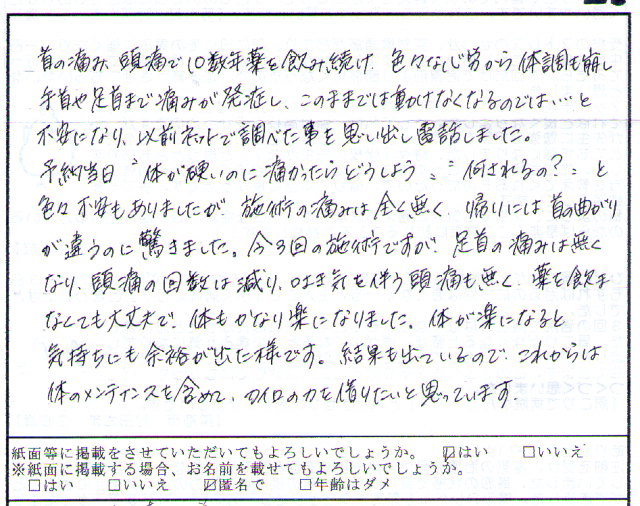 首の痛み、頭痛で10数年薬を飲み続け、色々な心労から体調も崩し
手首や足首まで痛みが発症し、このままでは動けなくなるのでは…と
不安になり、以前ネットで調べた事を思い出し電話しました。
予約当日 〝体が硬いのに痛かったらどうしよう〟〝何されるの?〟と
色々不安もありましたが、施術の痛みは全く無く、帰りには首の曲がり
が違うのに驚きました。今3回の施術ですが、足首の痛みは無く
なり、頭痛の回数は減り、吐き気を伴う頭痛も無く、薬を飲ま
なくても大丈夫で、体もかなり楽になりました。体が楽になると
気持ちにも余裕が出た様です。結果も出ているので、これからは
体のメンテナンスを含めて、カイロの力を借りたいと思っています。
紙面等に掲載をさせていただいてもよろしいでしょうか。 ☑はい □いいえ
※紙面に掲載する場合、お名前を載せてもよろしいでしょうか。
□はい □いいえ ☑匿名で □年齢はダメ